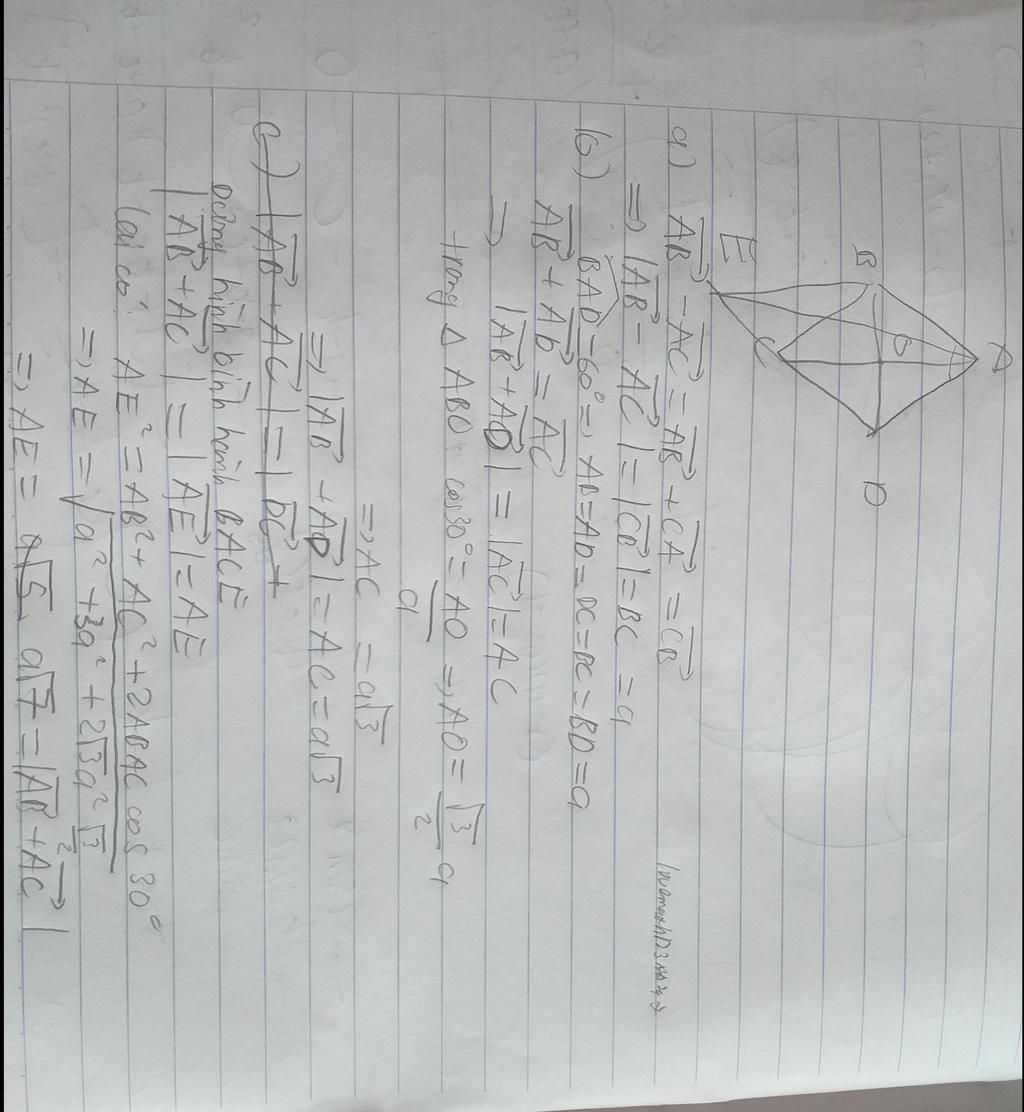 A
B
O
D
C
E
a) AB⃗ - AC⃗ = AB⃗ + CA⃗ = CB⃗
=> |AB⃗ - AC⃗| = |CB⃗| = BC = a
b) BAD = 60° => AB = AD = DC = BC = BD = a
AB⃗ + AD⃗ = AC⃗
=> |AB⃗ + AD⃗| = |AC⃗| = AC
trong Δ ABO: cos 30° = AO/a => AO = √3/2 a
=> AC = a√3
=> |AB⃗ + AD⃗| = AC = a√3
c) |AB⃗ + AC⃗| = | DC⃗ +
Dựng hình bình hành BACE
|AB⃗ + AC⃗| = |AE⃗| = AE
lại có: AE² = AB² + AC² + 2ABAC cos 30°
=> AE = √(a² + 3a² + 2√3a² √3/2)
=> AE = a√7 = |AB⃗ + AC⃗|